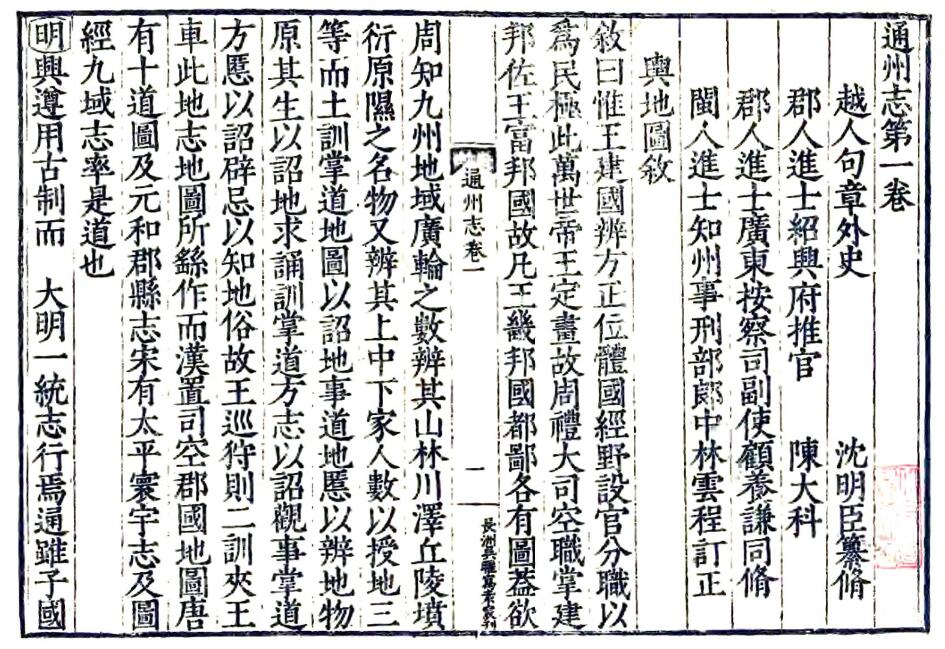 通州志第一卷
越人句章外史 沈明臣纂脩
郡人進士紹興府推官 陳大科
郡人進士廣東按察司副使顧養謙同脩
閩人進士知州事刑部郎中林雲程訂正
輿地圖敘
敘曰惟王建國辨方正位體國經野設官分職以
為民極此萬世帝王定畫故周禮大司空職掌建
邦佐王富邦國故凡王畿邦國都鄙各有圖蓋欲
通州志卷一 一 長洲吳曜寫
周知九州地域廣輪之數辨其山林川澤丘陵墳
衍原隰之名物又辨其上中下家人數以授地三
等而土訓掌道地圖以詔地事道地慝以辨地物
原其生以詔地求誦訓掌道方志以詔觀事掌道
方慝以詔辟忌以知地俗故王巡狩則二訓夾王
車此地志地圖所繇作而漢置司空郡國地圖唐
有十道圖及元和郡縣志宋有太平寰宇志及圖
經九域志率是道也
明興遵用古制而 大明一統志行焉通雖子國